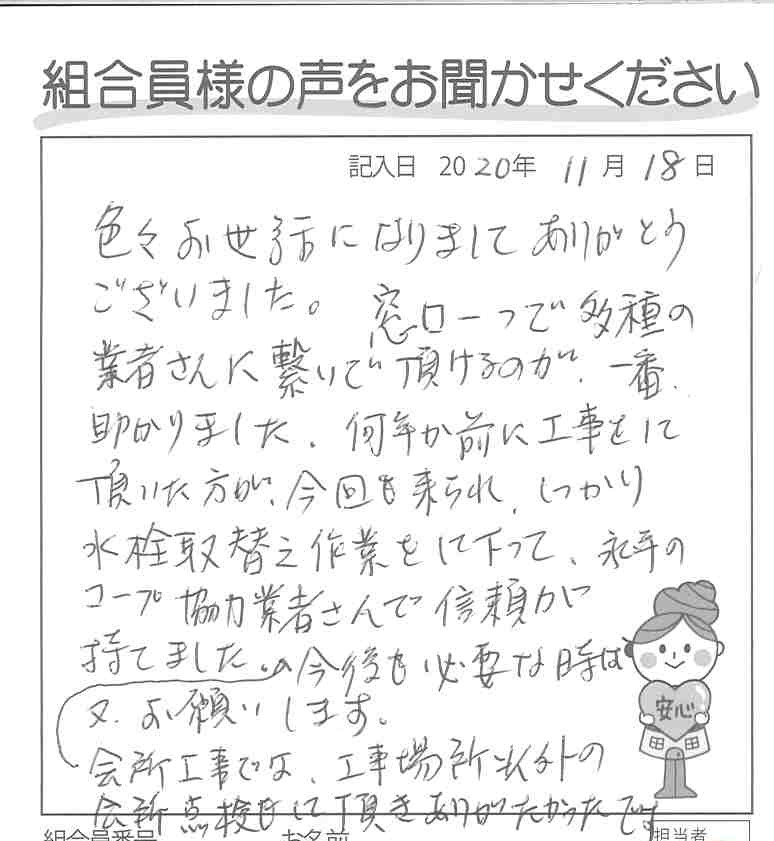 組合員様の声をお聞かせください
記入日 2020年 11月 18日
色々お世話になりまして ありがとう
ございました。 窓口一つで 多種の
業者さんに繋いで頂けるのが、一番、
助かりました。何年か前に工事をして
頂いた方が、今回も来られ、しっかり
水栓取替え作業をして下って、永年の
コープ 協力業者さんで 信頼が
持てました。今後も必要な時は
又、お願いします。
会所工事では、工事場所以外の
会所点検をして頂きありがたかったです
安心
組合員番号 お名前 担当者